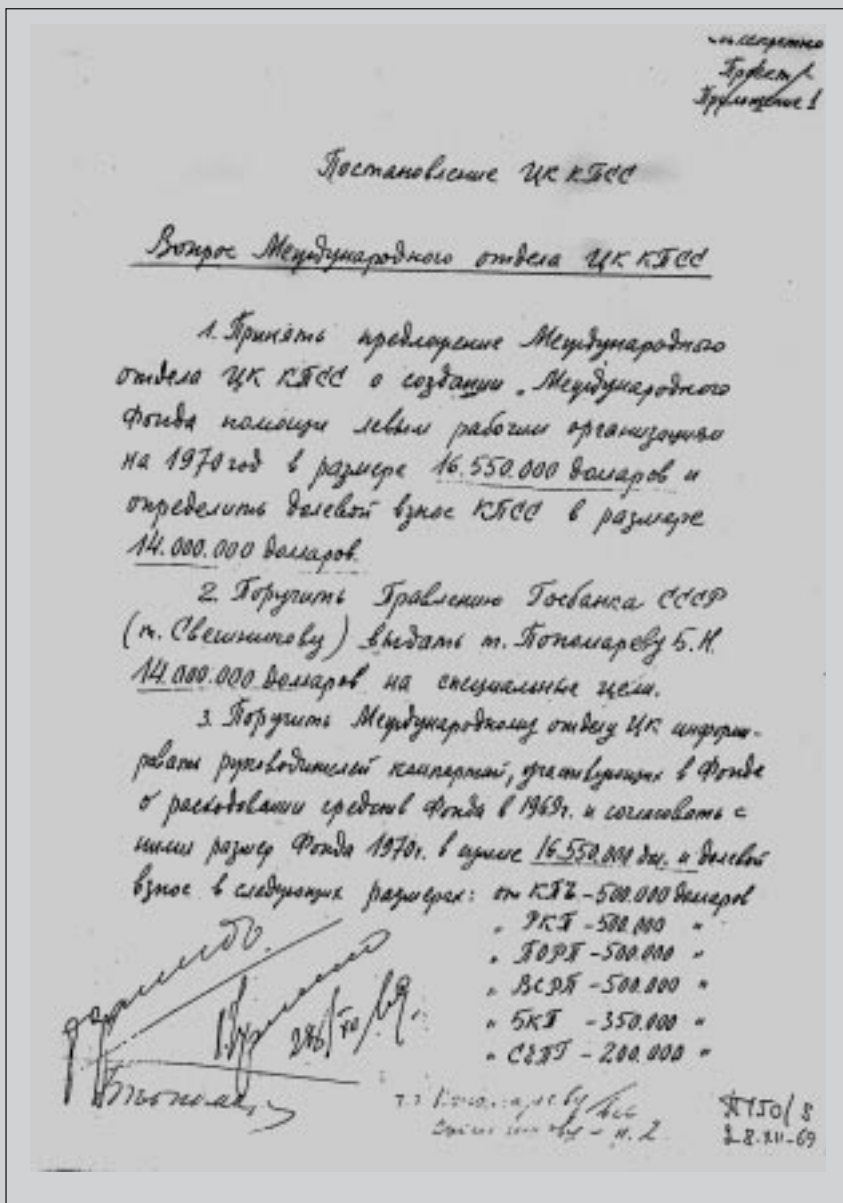 секретно
Проект
Приложение 1
Постановление ЦК КПСС
Вопрос Международного отдела ЦК КПСС
1. Принять предложение Международного
отдела ЦК КПСС о создании „Международного
Фонда помощи левым рабочим организациям
на 1970 год в размере 16.550.000 долларов и
определить долевой взнос КПСС в размере
14.000.000 долларов.
2. Поручить Правлению Госбанка СССР
(т. Свешникову) выдать т. Пономареву Б.Н.
14.000.000 долларов на специальные цели.
3. Поручить Международному отделу ЦК информи-
ровать руководителей компартий, участвующих в Фонде
о расходовании средств Фонда в 1969г. и согласовать с
ними размер Фонда 1970г. в сумме 16.550.000 дол. и долевой
взнос в следующих размерах: от КПЧ - 500.000 долларов
" РКП - 500.000 "
" ПОРП - 500.000 "
" ВСРП - 500.000 "
" БКП - 350.000 "
" СЕПГ - 200.000 "
т.т. Пономареву
Свешникову - п. 2
П150/8
28.XII-69